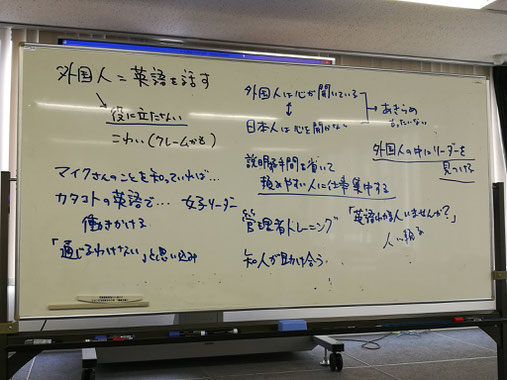 外国人=英語を話す
役に立たない
こわい(クレームかも)
マイクさんのことを知っていれば…
カタコトの英語で… 女子リーダー
働きかける
「通じるわけない」と思い込み
外国人は心が開いている
↕
日本人は心を開かない
あきらめ
もったいない
外国人の中にリーダーを
見つける
説明る手間を省いて
頼みやすい人に仕事集中する
管理者トレーニング
「英語わかる人いませんか?」
人に頼る
知人が助け合う